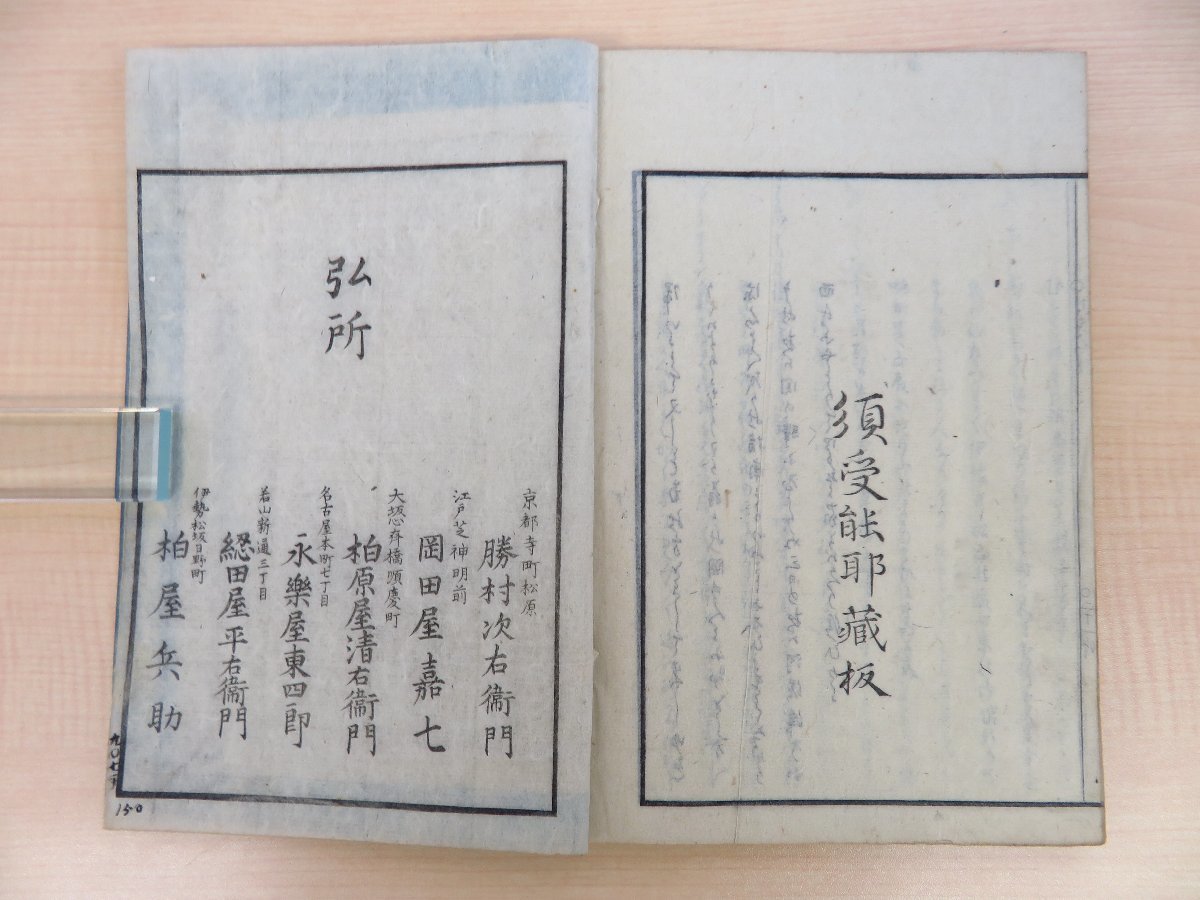 須受能耶藏板
弘所
京都寺町松原
勝村次右衞門
江戸芝神明前
岡田屋嘉七
大坂心斉橋順慶町
柏原屋清右衞門
名古屋本町七丁目
永樂屋東四郎
若山新通三丁目
綛田屋平右衞門
伊勢松坂日野町
柏屋兵助
150